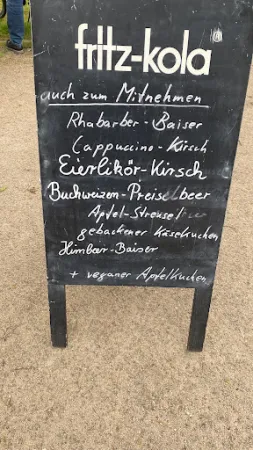 fritz-kola
auch zum Mitnehmen
Rhabarber-Baiser
Cappuccino-Kirsch
Eierlikör-Kirsch
Buchweizen-Preiselbeer
Apfel-Streusel
gebackener Käsekuchen
Himbeer-Baiser
+ veganer Apfelkuchen